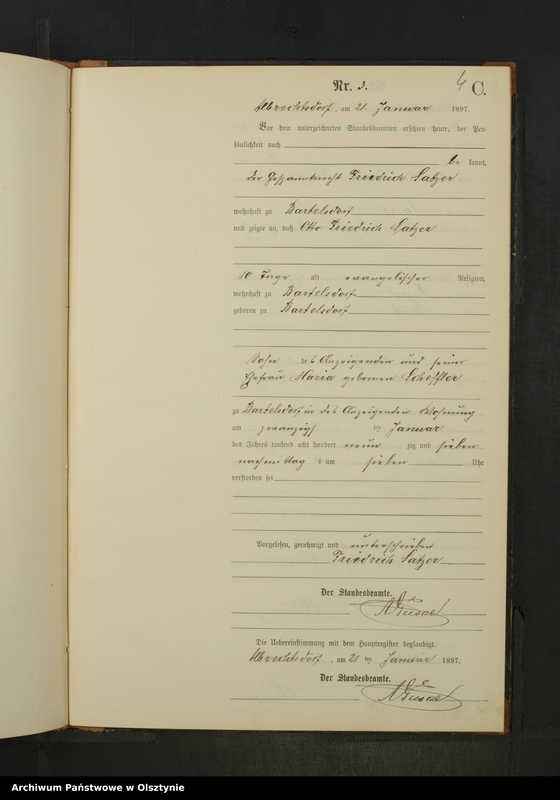 Nr. 3.
4 C.
Albrechtsdorf, am 21. Januar 1897.
Vor dem unterzeichneten Standesbeamten erschien heute, der Per-
sönlichkeit nach
be kannt,
der Gespannknecht Friedrich Satzer
wohnhaft zu Bartelsdorf
und zeigte an, daß Otto Friedrich Satzer
10 Tage alt evangelischer Religion,
wohnhaft zu Bartelsdorf
geboren zu Bartelsdorf
Sohn des Anzeigenden und seiner
Ehefrau Maria geborenen Scheffler
zu Bartelsdorf in des Anzeigenden Wohnung
am zwanzigsten Januar
des Jahres tausend acht hundert neun zig und sieben
nachmittags um sieben Uhr
verstorben sei
Vorgelesen, genehmigt und unterschrieben
Friedrich Satzer
Der Standesbeamte.
Die Uebereinstimmung mit dem Hauptregister beglaubigt.
Albrechtsdorf, am 21 ten Januar 1897.
Der Standesbeamte.
Archiwum Państwowe w Olsztynie